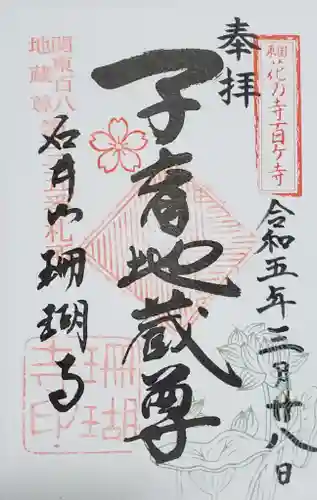 奉拝
東国花の寺百ケ寺
令和五年三月廿八日
子育地蔵尊
関東百八
地蔵尊
札
石井山珊瑚寺
珊瑚
寺印